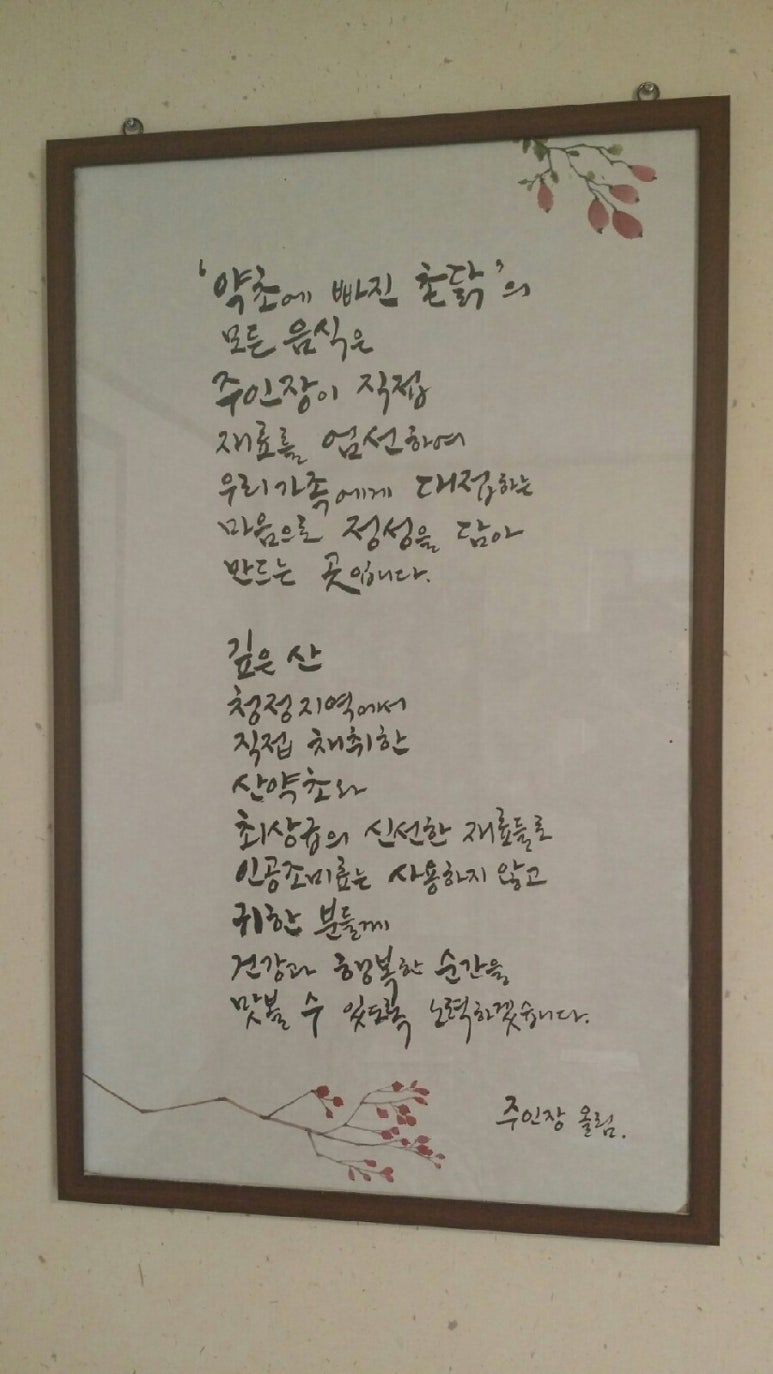 '약초에 빠진 촌닭'의
모든 음식은
주인장이 직접
재료를 엄선하여
우리가족에게 대접하는
마음으로 정성을 담아
만드는 곳입니다.
깊은 산
청정지역에서
직접 채취한
산약초와
최상급의 신선한 재료들로
인공조미료는 사용하지 않고
귀한 분들께
건강과 행복한 순간을
맛볼 수 있도록 노력하겠습니다.
주인장 올림.